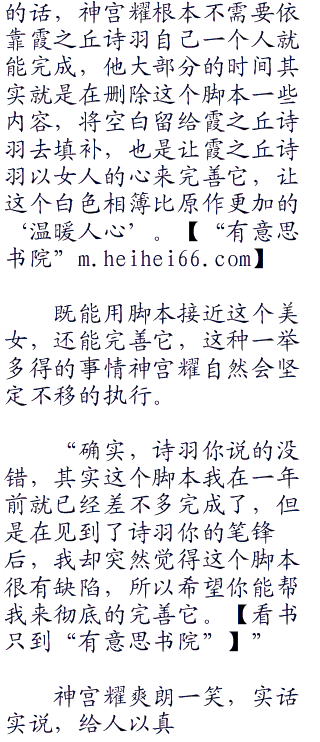 的话，神宫耀根本不需要依
靠霞之丘诗羽自己一个人就
能完成，他大部分的时间其
实就是在删除这个脚本一些
内容，将空白留给霞之丘诗
羽去填补，也是让霞之丘诗
羽以女人的心来完善它，让
这个白色相簿比原作更加的
‘温暖人心’。【“有意思
书院”m.heihei66.com】
既能用脚本接近这个美
女，还能完善它，这种一举
多得的事情神宫耀自然会坚
定不移的执行。
“确实，诗羽你说的没
错，其实这个脚本我在一年
前就已经差不多完成了，但
是在见到了诗羽你的笔锋
后，我却突然觉得这个脚本
很有缺陷，所以希望你能帮
我来彻底的完善它。【看书
只到“有意思书院”】”
神宫耀爽朗一笑，实话
实说，给人以真